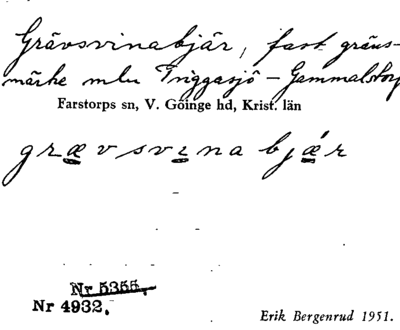 Grävsvinabjär, fast gräns-
märke mln Triggasjö - Gammalstorp
Farstorps sn, V. Göinge hd, Krist. län
grævsvınabjǽr
Nr 5355.
Nr 4932.
Erik Bergenrud 1951.